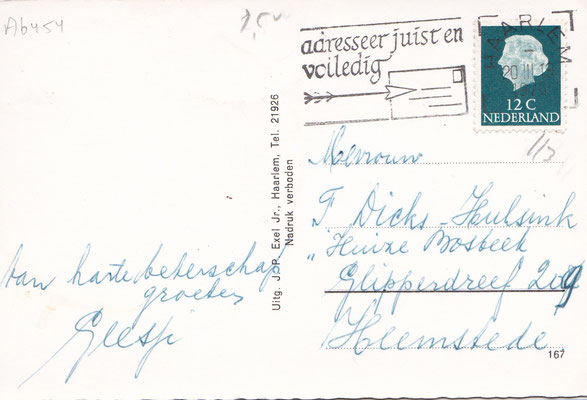 Ab454
adresseer juist en
volledig
HAARLEM
20 III
12 C
NEDERLAND
Uitg. J.P. Exel Jr., Haarlem, Tel. 21926
Nadruk verboden
Mevrouw
F Dicks-Hulsink
"Huize Bosbeek
Glipperdreef 209
Heemstede
167
Van harte beterschap
groeten
Geesje